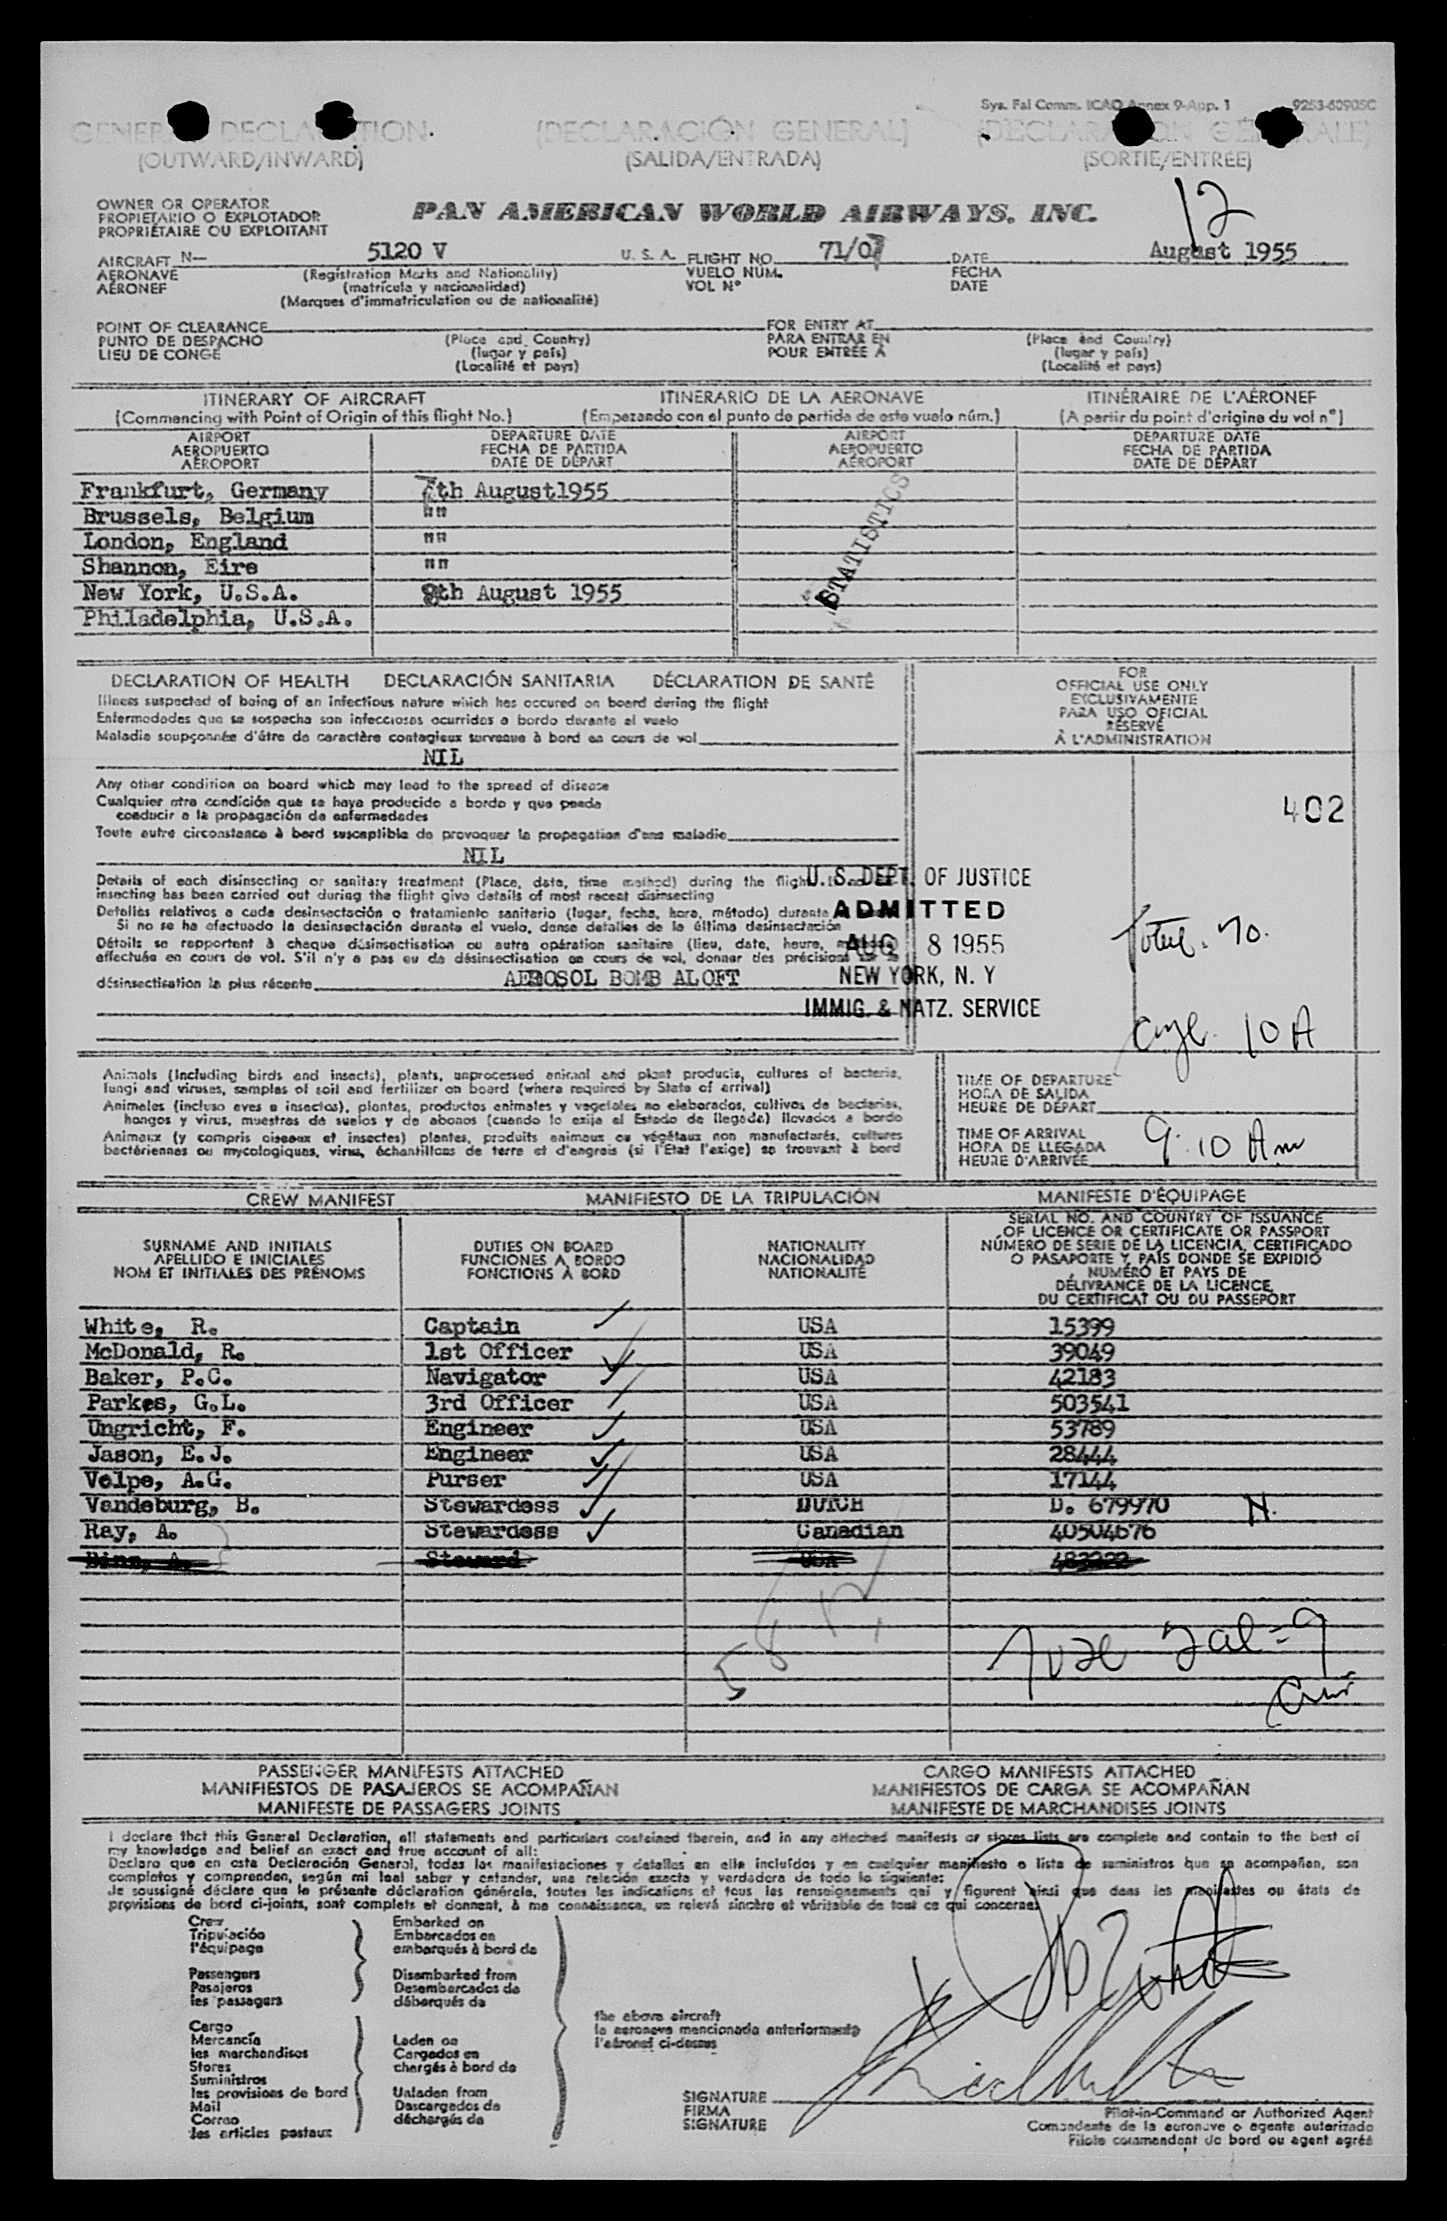 Sys. Fal Comm. ICAO Annex 9-App. 1 9253-60905C
GENERAL DECLARATION (DECLARACIÓN GENERAL) (DÉCLARATION GÉNÉRALE)
(OUTWARD/INWARD) (SALIDA/ENTRADA) (SORTIE/ENTRÉE)
12
OWNER OR OPERATOR
PROPIETARIO O EXPLOTADOR
PROPRIÉTAIRE OU EXPLOITANT
PAN AMERICAN WORLD AIRWAYS, INC.
AIRCRAFT N— 5120 V U. S. A. FLIGHT NO. 71/07 DATE August 1955
AERONAVE (Registration Marks and Nationality) VUELO NÚM. FECHA
AÉRONEF (matrícula y nacionalidad) VOL Nº DATE
(Marques d'immatriculation ou de nationalité)
POINT OF CLEARANCE FOR ENTRY AT
PUNTO DE DESPACHO (Place and Country) PARA ENTRAR EN (Place and Country)
LIEU DE CONGÉ (lugar y país) POUR ENTRÉE À (lugar y país)
(Localité et pays) (Localité et pays)
ITINERARY OF AIRCRAFT ITINERARIO DE LA AERONAVE ITINÉRAIRE DE L'AÉRONEF
(Commencing with Point of Origin of this flight No.) (Empezando con el punto de partida de este vuelo núm.) (A partir du point d'origine du vol nº)
AIRPORT DEPARTURE DATE AIRPORT DEPARTURE DATE
AEROPUERTO FECHA DE PARTIDA AEROPUERTO FECHA DE PARTIDA
AÉROPORT DATE DE DÉPART AÉROPORT DATE DE DÉPART
Frankfurt, Germany 7th August1955
Brussels, Belgium ""
London, England ""
Shannon, Eire ""
New York, U.S.A. 8th August 1955
Philadelphia, U.S.A.
STATISTICS
DECLARATION OF HEALTH DECLARACIÓN SANITARIA DÉCLARATION DE SANTÉ
FOR
OFFICIAL USE ONLY
EXCLUSIVAMENTE
PARA USO OFICIAL
RÉSERVÉ
À L'ADMINISTRATION
Illness suspected of being of an infectious nature which has occured on board during the flight
Enfermedades que se sospecha son infecciosas ocurridas a bordo durante el vuelo
Maladie soupçonnée d'être de caractère contagieux survenue à bord en cours de vol
NIL
Any other condition on board which may lead to the spread of disease
Cualquier otra condición que se haya producido a bordo y que pueda
conducir a la propagación de enfermedades
Toute autre circonstance à bord susceptible de provoquer la propagation d'une maladie
NIL
402
Details of each disinsecting or sanitary treatment (Place, date, time method) during the flight.
insecting has been carried out during the flight give details of most recent disinsecting
Detalles relativos a cada desinsectación o tratamiento sanitario (lugar, fecha, hora, método) durante
Si no se ha efectuado la desinsectación durante el vuelo, dense detalles de la última desinsectación
Détails se rapportent à chaque désinsectisation ou autre opération sanitaire (lieu, date, heure,
effectuée en cours de vol. S'il n'y a pas eu de désinsectisation en cours de vol, donner des précisions
désinsectisation la plus récente AEROSOL BOMB ALOFT
U. S. DEPT. OF JUSTICE
ADMITTED
AUG 8 1955
NEW YORK, N. Y
IMMIG. & NATZ. SERVICE
70.
10 A
Animals (including birds and insects), plants, unprocessed animal and plant products, cultures of bacteria,
fungi and viruses, samples of soil and fertilizer on board (where required by State of arrival)
Animales (incluso aves e insectos), plantas, productos animales y vegetales no elaborados, cultivos de bacterias,
hongos y virus, muestras de suelos y de abonos (cuando lo exija el Estado de llegada) llevados a bordo
Animaux (y compris oiseaux et insectes) plantes, produits animaux ou végétaux non manufacturés, cultures
bactériennes ou mycologiques, virus, échantillons de terre et d'engrais (si l'État l'exige) se trouvant à bord
TIME OF DEPARTURE
HORA DE SALIDA
HEURE DE DÉPART
TIME OF ARRIVAL
HORA DE LLEGADA
HEURE D'ARRIVÉE 9:10 Am
CREW MANIFEST MANIFIESTO DE LA TRIPULACIÓN MANIFESTE D'ÉQUIPAGE
SURNAME AND INITIALS
APELLIDO E INICIALES
NOM ET INITIALES DES PRÉNOMS
DUTIES ON BOARD
FUNCIONES A BORDO
FONCTIONS À BORD
NATIONALITY
NACIONALIDAD
NATIONALITÉ
SERIAL NO. AND COUNTRY OF ISSUANCE
OF LICENCE OR CERTIFICATE OR PASSPORT
NÚMERO DE SERIE DE LA LICENCIA, CERTIFICADO
O PASAPORTE Y PAÍS DONDE SE EXPIDIÓ
NUMÉRO ET PAYS DE
DÉLIVRANCE DE LA LICENCE,
DU CERTIFICAT OU DU PASSEPORT
White, R. Captain USA 15399
McDonald, R. 1st Officer USA 39049
Baker, P.C. Navigator USA 42183
Parkes, G.L. 3rd Officer USA 503541
Ungricht, F. Engineer USA 53789
Jason, E.J. Engineer USA 28444
Volpe, A.G. Purser USA 17144
Vandeburg, B. Stewardess DUTCH D. 679970 N.
Ray, A. Stewardess Canadian 40504676
Steward USA
PASSENGER MANIFESTS ATTACHED CARGO MANIFESTS ATTACHED
MANIFIESTOS DE PASAJEROS SE ACOMPAÑAN MANIFIESTOS DE CARGA SE ACOMPAÑAN
MANIFESTE DE PASSAGERS JOINTS MANIFESTE DE MARCHANDISES JOINTS
I declare that this General Declaration, all statements and particulars contained therein, and in any attached manifests or stores lists are complete and contain to the best of
my knowledge and belief an exact and true account of all:
Declaro que en esta Declaración General, todas las manifestaciones y detalles en ella incluídos y en cualquier manifiesto o lista de suministros que se acompañan, son
completos y comprenden, según mi leal saber y entender, una relación exacta y verdadera de todo lo siguiente:
Je soussigné déclare que la présente déclaration générale, toutes les indications et tous les renseignements qui y figurent ainsi que dans les manifestes ou états de
provisions de bord ci-joints, sont complets et donnent, à ma connaissance, un relevé sincère et véritable de tout ce qui concerne:
Crew Embarked on
Tripulación Embarcados en
l'équipage embarqués à bord de
Passengers Disembarked from
Pasajeros Desembarcados de
les passagers débarqués de
the above aircraft
la aeronave mencionada anteriormente
l'aéronef ci-dessus
Cargo
Mercancía Laden on
les marchandises Cargados en
Stores chargés à bord de
Suministros
les provisions de bord Unladen from
Mail Descargados de
Correo déchargés de
les articles postaux
SIGNATURE
FIRMA
SIGNATURE
Pilot-in-Command or Authorized Agent
Comandante de la aeronave o agente autorizado
Pilote commandant de bord ou agent agréé